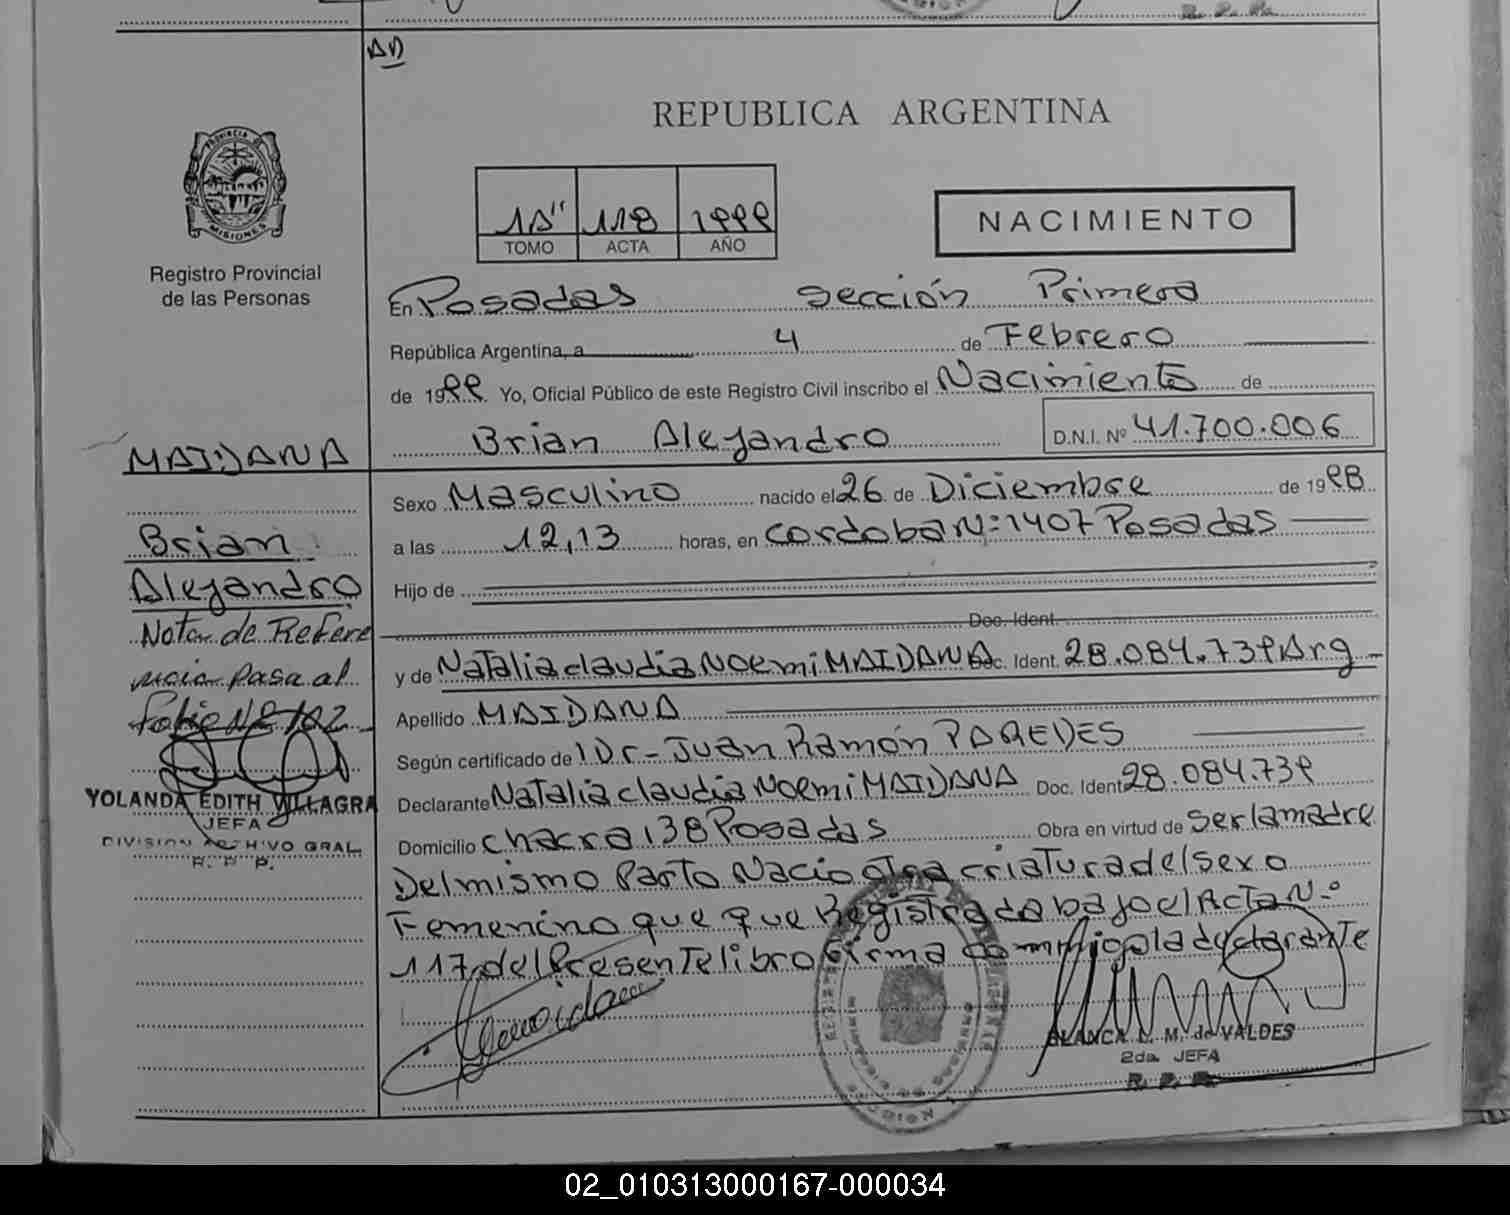 AD
REPUBLICA ARGENTINA
PROVINCIA DE
MISIONES
Registro Provincial
de las Personas
1A" 118 1999
TOMO ACTA AÑO
NACIMIENTO
En Posadas sección Primera
República Argentina, a 4 de Febrero
de 1999. Yo, Oficial Público de este Registro Civil inscribo el Nacimiento de
Brian Alejandro D.N.I. Nº 41.700.006
MAIDANA
Sexo Masculino nacido el 26 de Diciembre de 1998
Brian
a las 12,13 horas, en cordoba N:1407 Posadas
Alejandro
Hijo de
Nota de Refere
Doc. Ident.
ncia Pasa al
y de Natalia claudia Noemi MAIDANA Doc. Ident. 28.084.739 Arg
Folio Nº 102
Apellido MAIDANA
Según certificado de l Dr- Juan Ramón PAREDES
YOLANDA EDITH VILLAGRA
JEFA
DIVISION ARCHIVO GRAL
R. P. P.
Declarante Natalia claudia Noemi MAIDANA Doc. Ident 28.084.739
Domicilio chacra 138 Posadas Obra en virtud de ser la madre
Del mismo Parto Nacio otra criatura del sexo
Femenino que que Registrada bajo el Acta N-º
117, del Presente libro firma conmigo la declarante
BLANCA L. M. de VALDES
2da. JEFA
R. P. P.
02_010313000167-000034